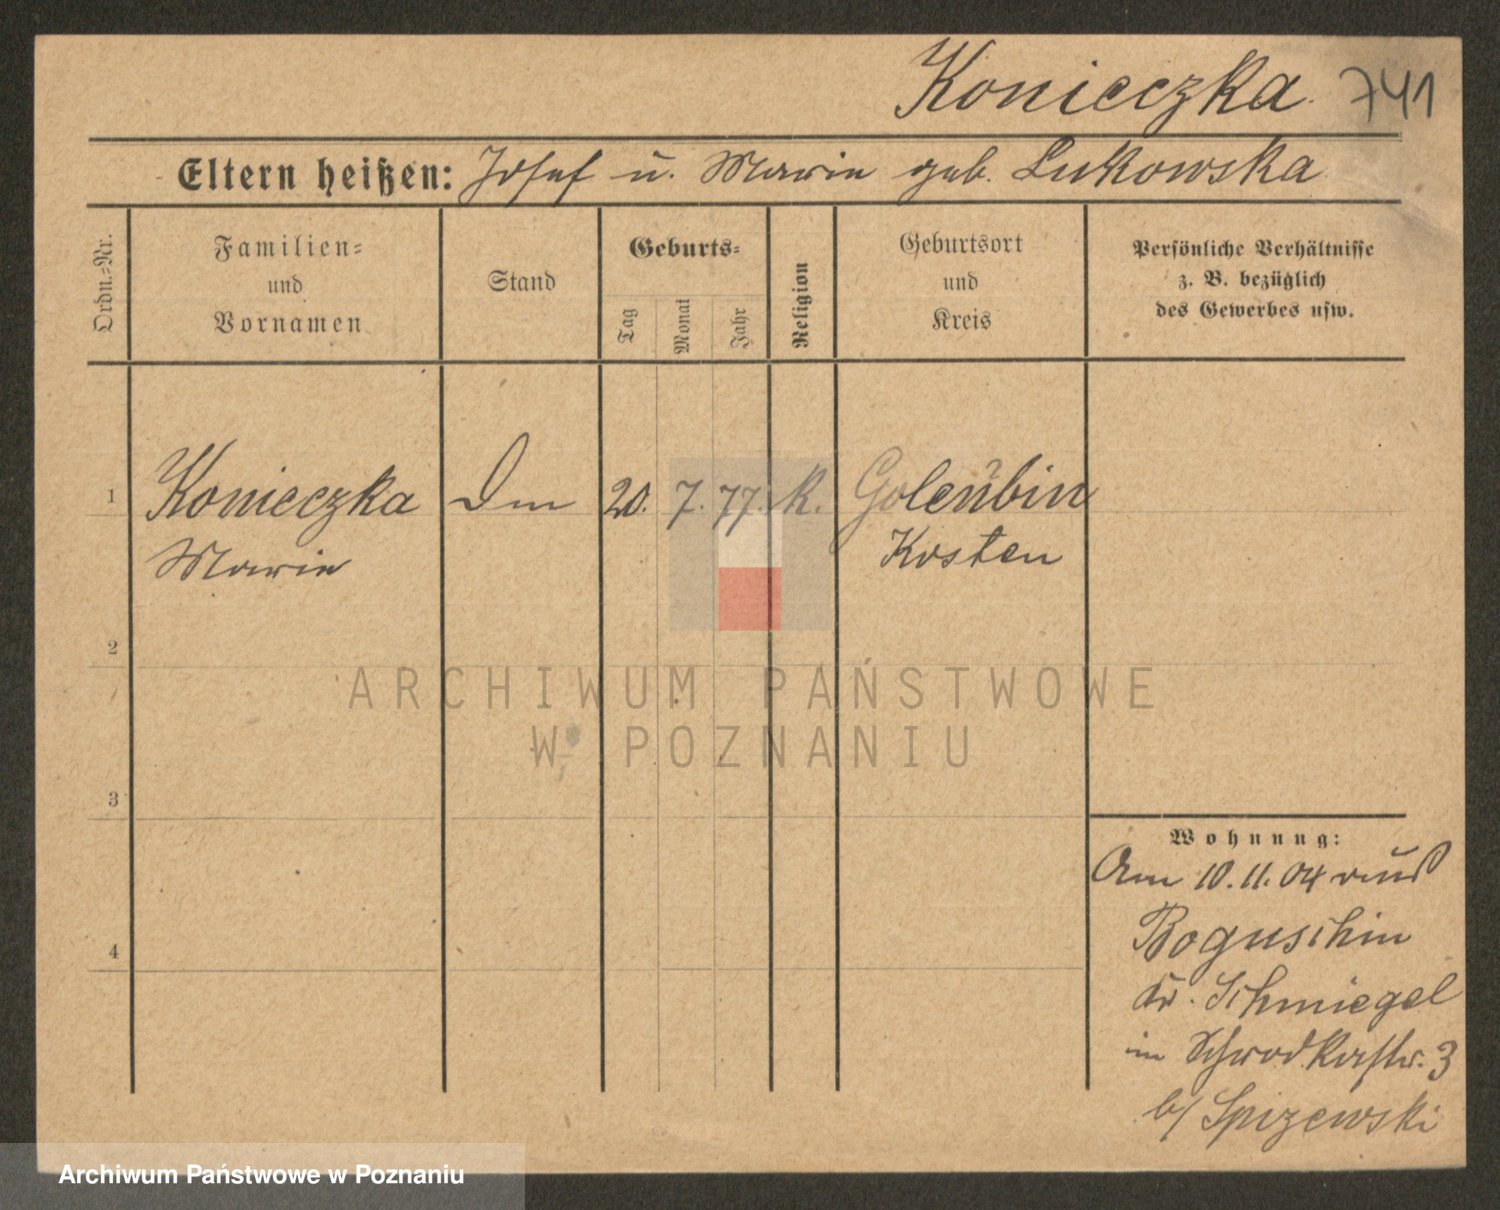 Konieczka. 741
Eltern heißen: Josef u. Marie geb. Lukowska
Ordn.-Nr.
Familien-
und
Vornamen
Stand
Geburts-
Tag
Monat
Jahr
Religion
Geburtsort
und
Kreis
Persönliche Verhältnisse
z. B. bezüglich
des Gewerbes usw.
1 Konieczka 20. 7. 77. k. Golembin
Marie Kosten
2
3
4
Wohnung:
Am 10.11.04
Boguschin
Kr. Schmiegel
in 3
b/ Spizewski
ARCHIWUM PAŃSTWOWE
W POZNANIU
Archiwum Państwowe w Poznaniu